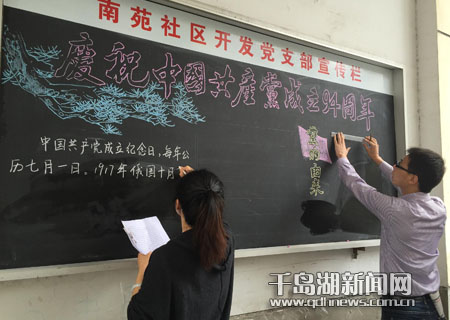 南苑社区开发党支部宣传栏
慶祝中國共產黨成立94周年
中国共产党成立纪念日，每年公
历七月一日。1917年俄国十月
的由来
千岛湖新闻网
www.qdhnews.com.cn